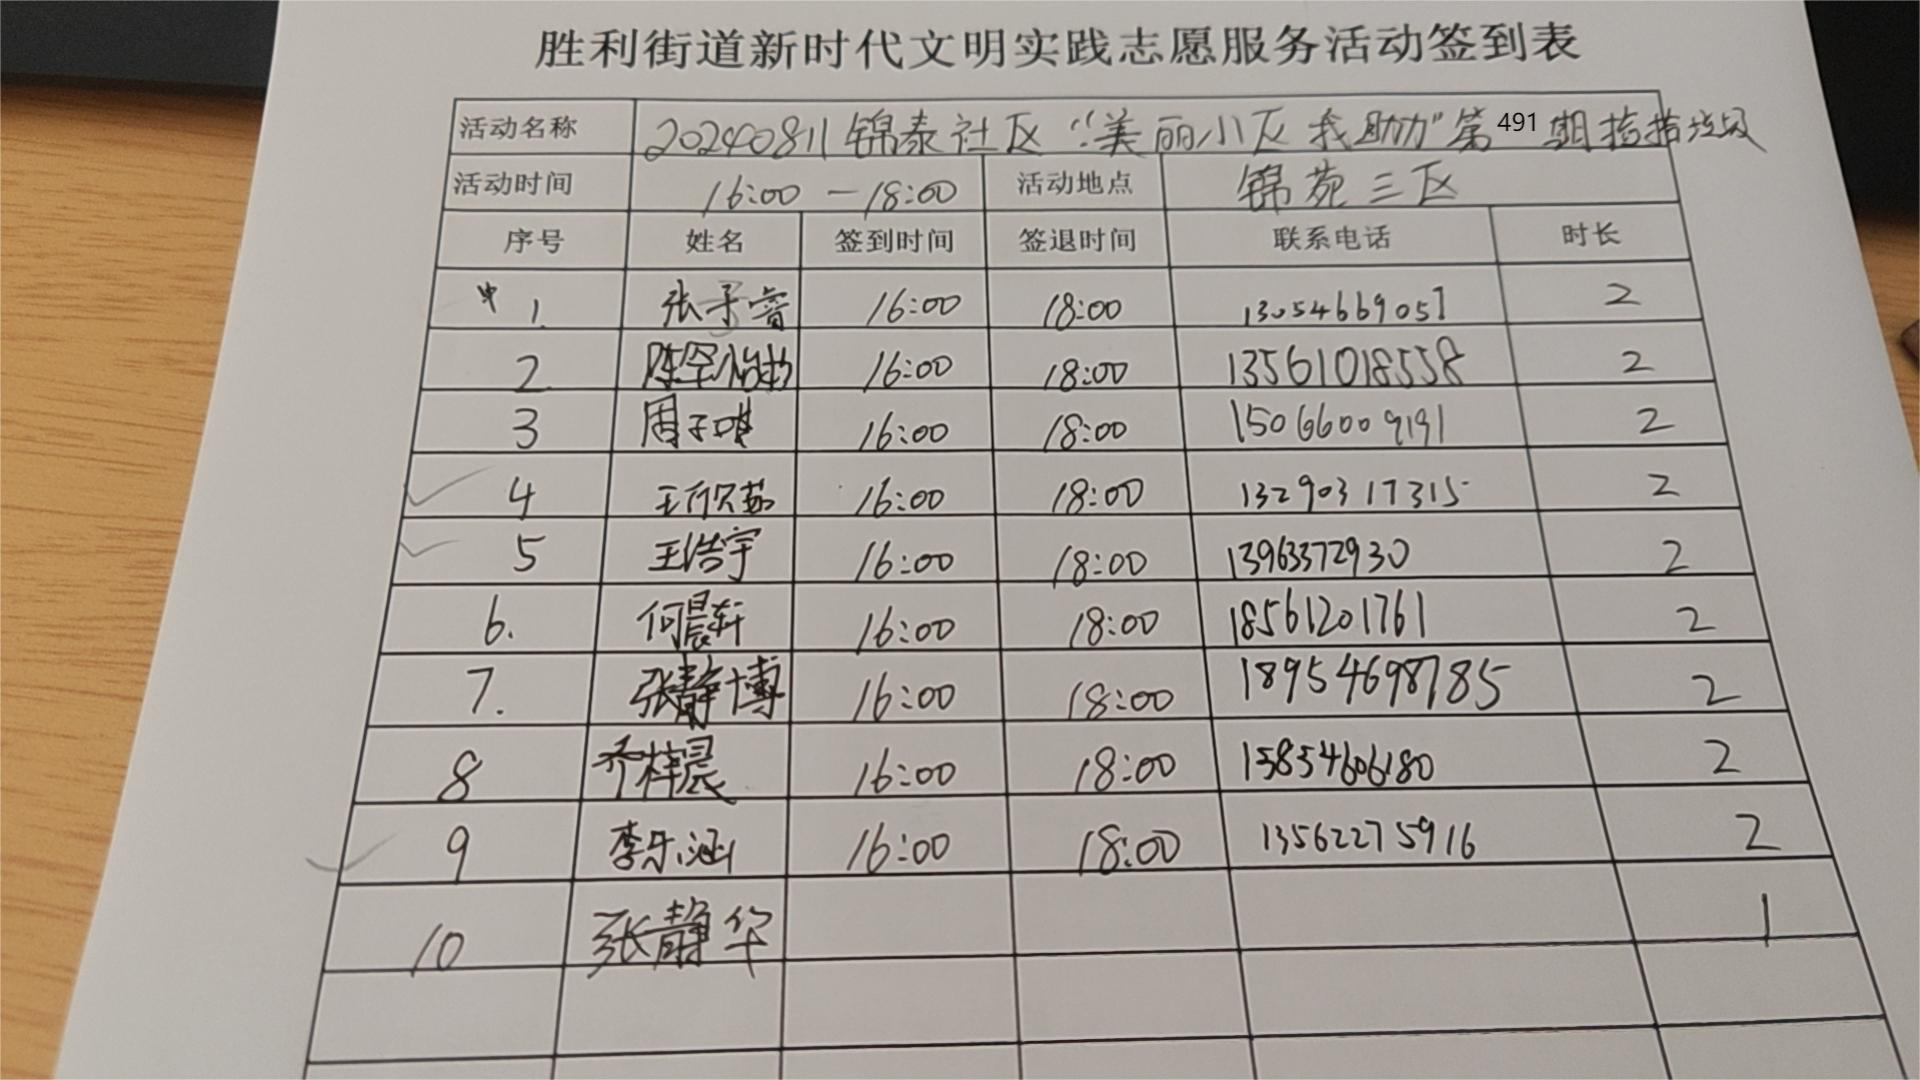 胜利街道新时代文明实践志愿服务活动签到表
活动名称 20240811锦泰社区“美丽小区我助力”第491期捡拾垃圾
活动时间 16:00-18:00 活动地点 锦苑三区
序号 姓名 签到时间 签退时间 联系电话 时长
1. 张子睿 16:00 18:00 13054669057 2
2 16:00 18:00 13561018558 2
3 周子琪 16:00 18:00 15066009191 2
4 王欣茹 16:00 18:00 13290317315 2
5 王浩宇 16:00 18:00 13963372930 2
6. 何晨轩 16:00 18:00 18561201761 2
7. 张静博 16:00 18:00 18954698785 2
8 乔梓晨 16:00 18:00 15854606180 2
9 李乐涵 16:00 18:00 13562275916 2
10 张静华 1